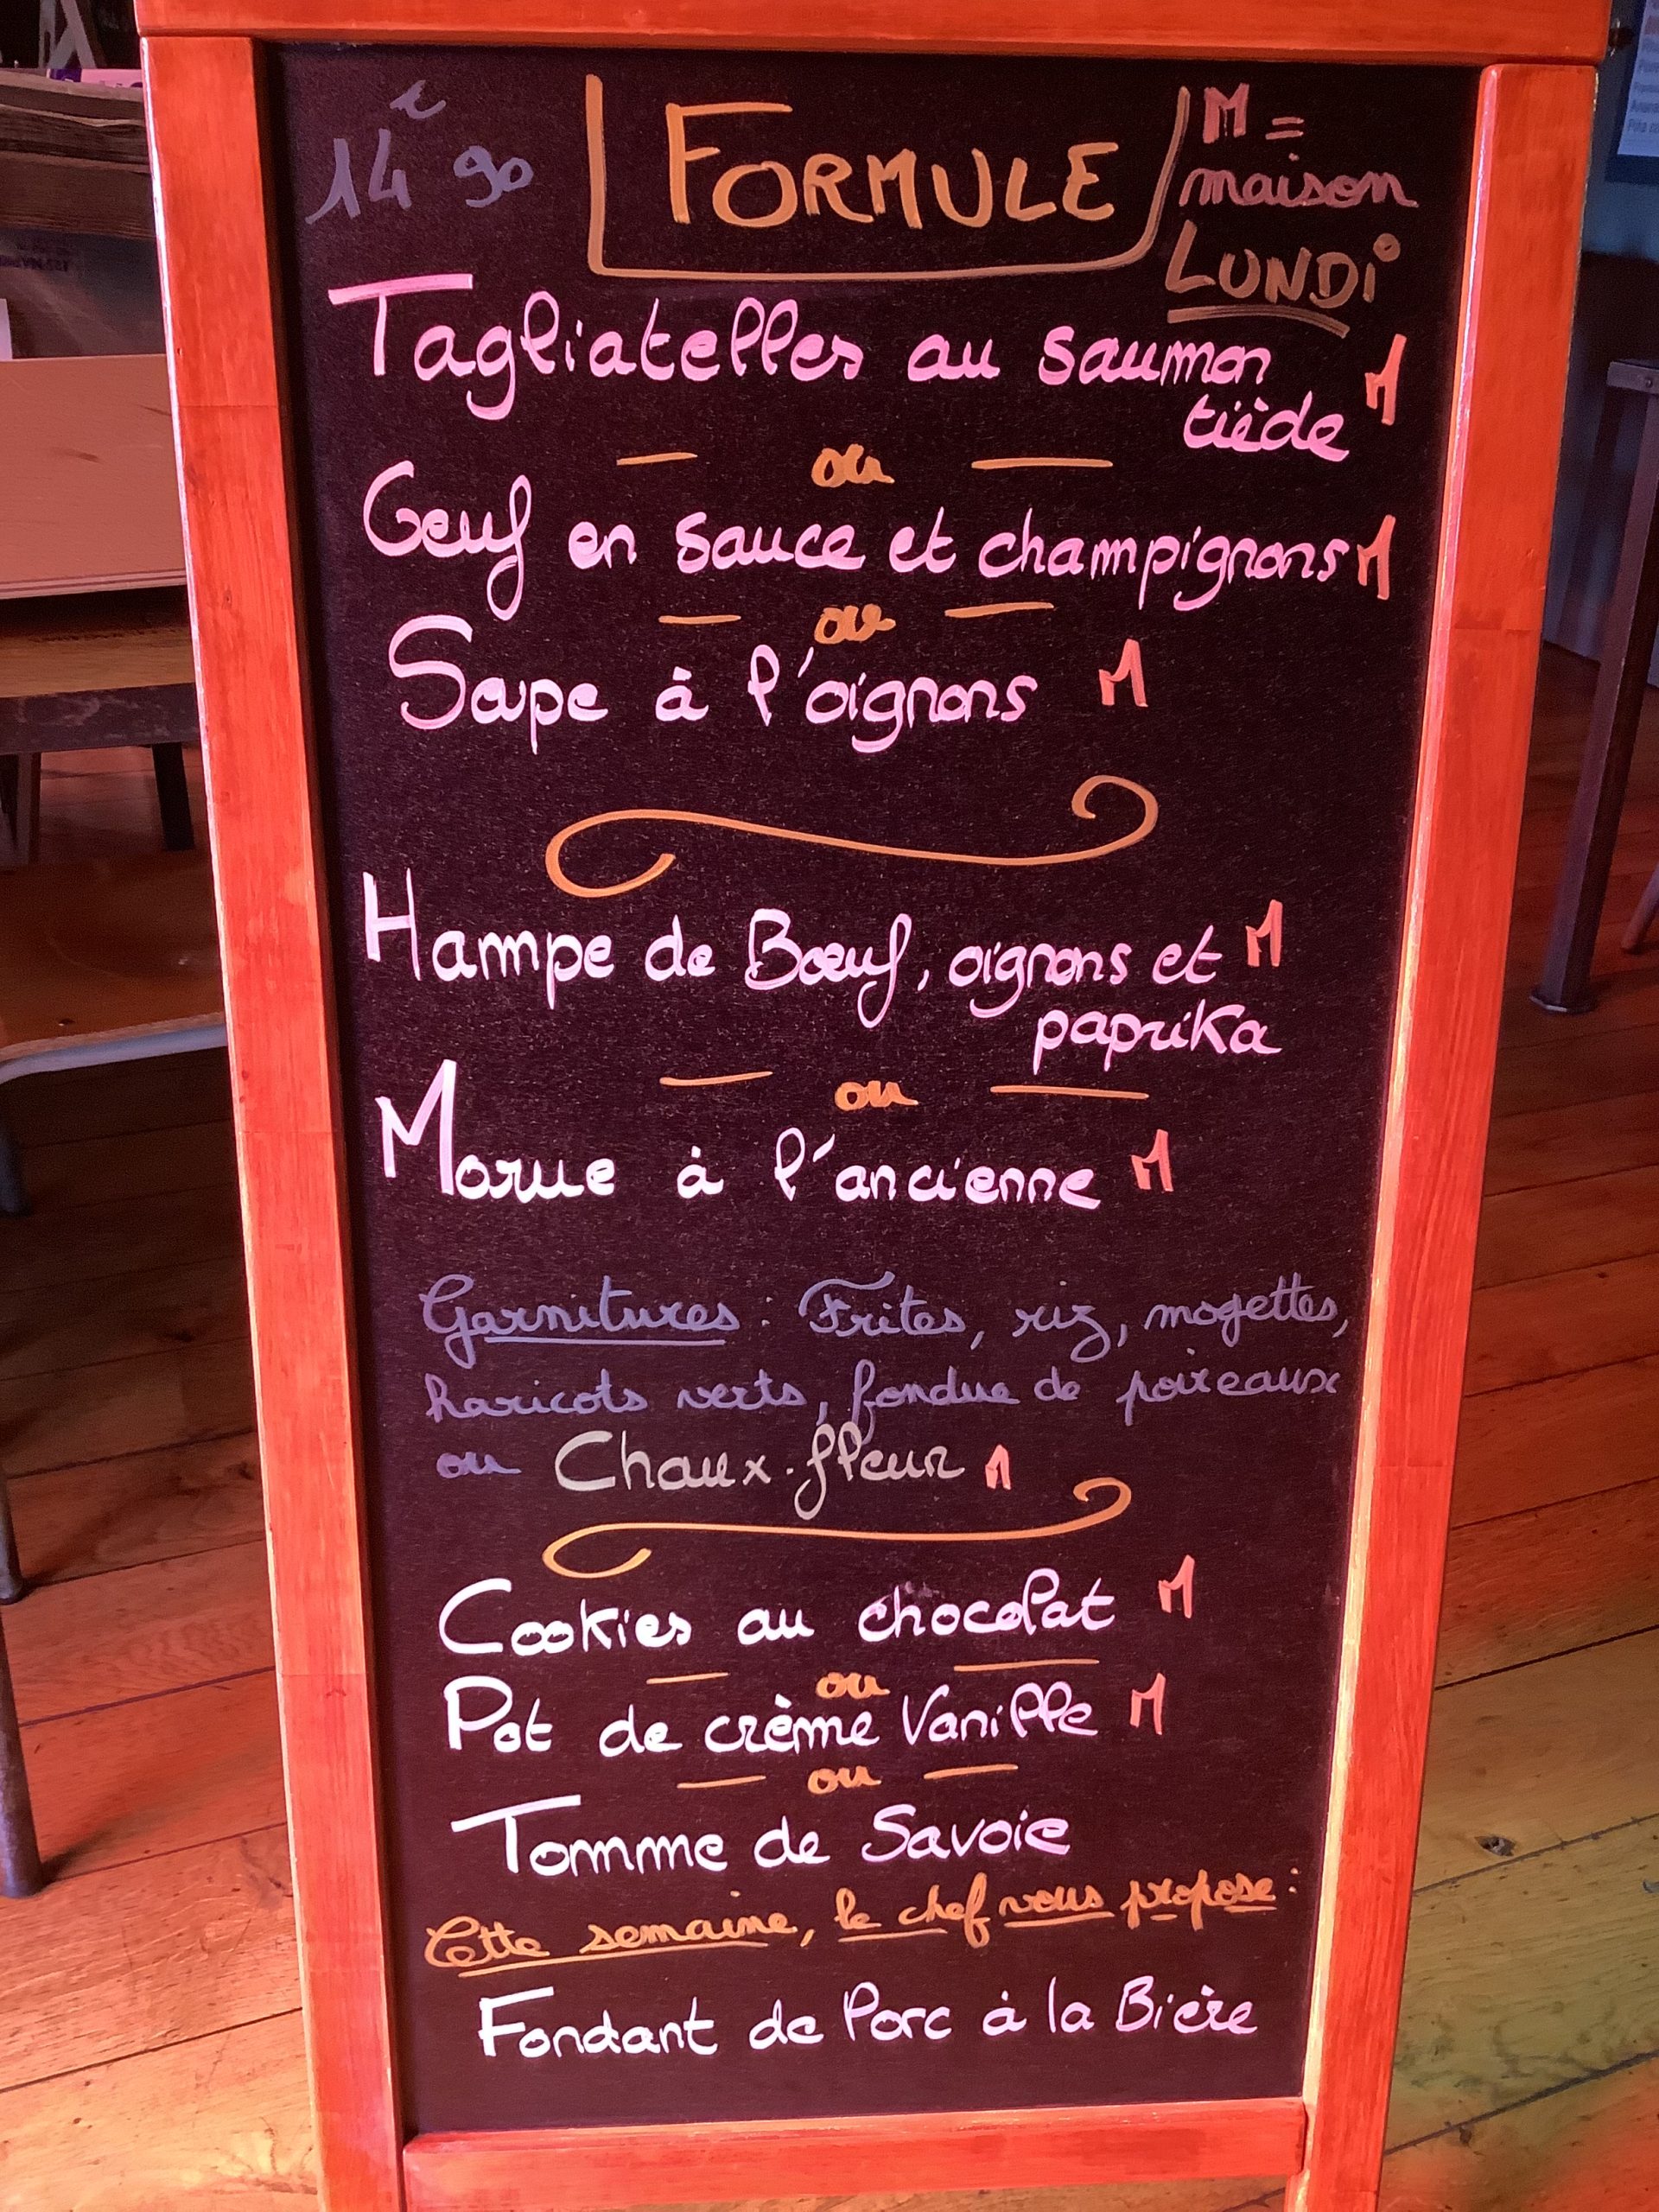 14€90
FORMULE
M =
maison
LUNDI
Tagliatelles au saumon M
tiède
ou
Oeuf en sauce et champignons M
ou
Soupe à l'oignons M
Hampe de Bœuf, oignons et M
paprika
ou
Morue à l'ancienne M
Garnitures : Frites, riz, mogettes,
haricots verts, fondue de poireaux
ou Choux-fleur M
Cookies au chocolat M
ou
Pot de crème Vanille M
ou
Tomme de Savoie
Cette semaine, le chef vous propose :
Fondant de Porc à la Bière